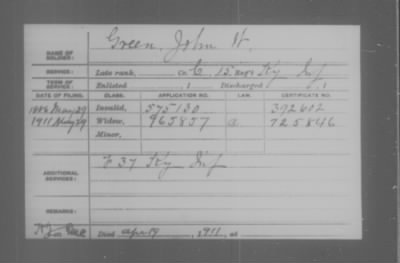 Green, John W.
NAME OF SOLDIER:
SERVICE: Late rank, Co. C, 15 Reg't Ky Inf
TERM OF SERVICE: Enlisted , 1 Discharged , 1
DATE OF FILING. CLASS. APPLICATION NO. LAW. CERTIFICATE NO.
1886 May 29 Invalid, 575130 392602
1911 May 29 Widow, 965857 725846
Minor,
ADDITIONAL SERVICES: F 37 Ky Inf
REMARKS:
Died Apr 19, 1911, at